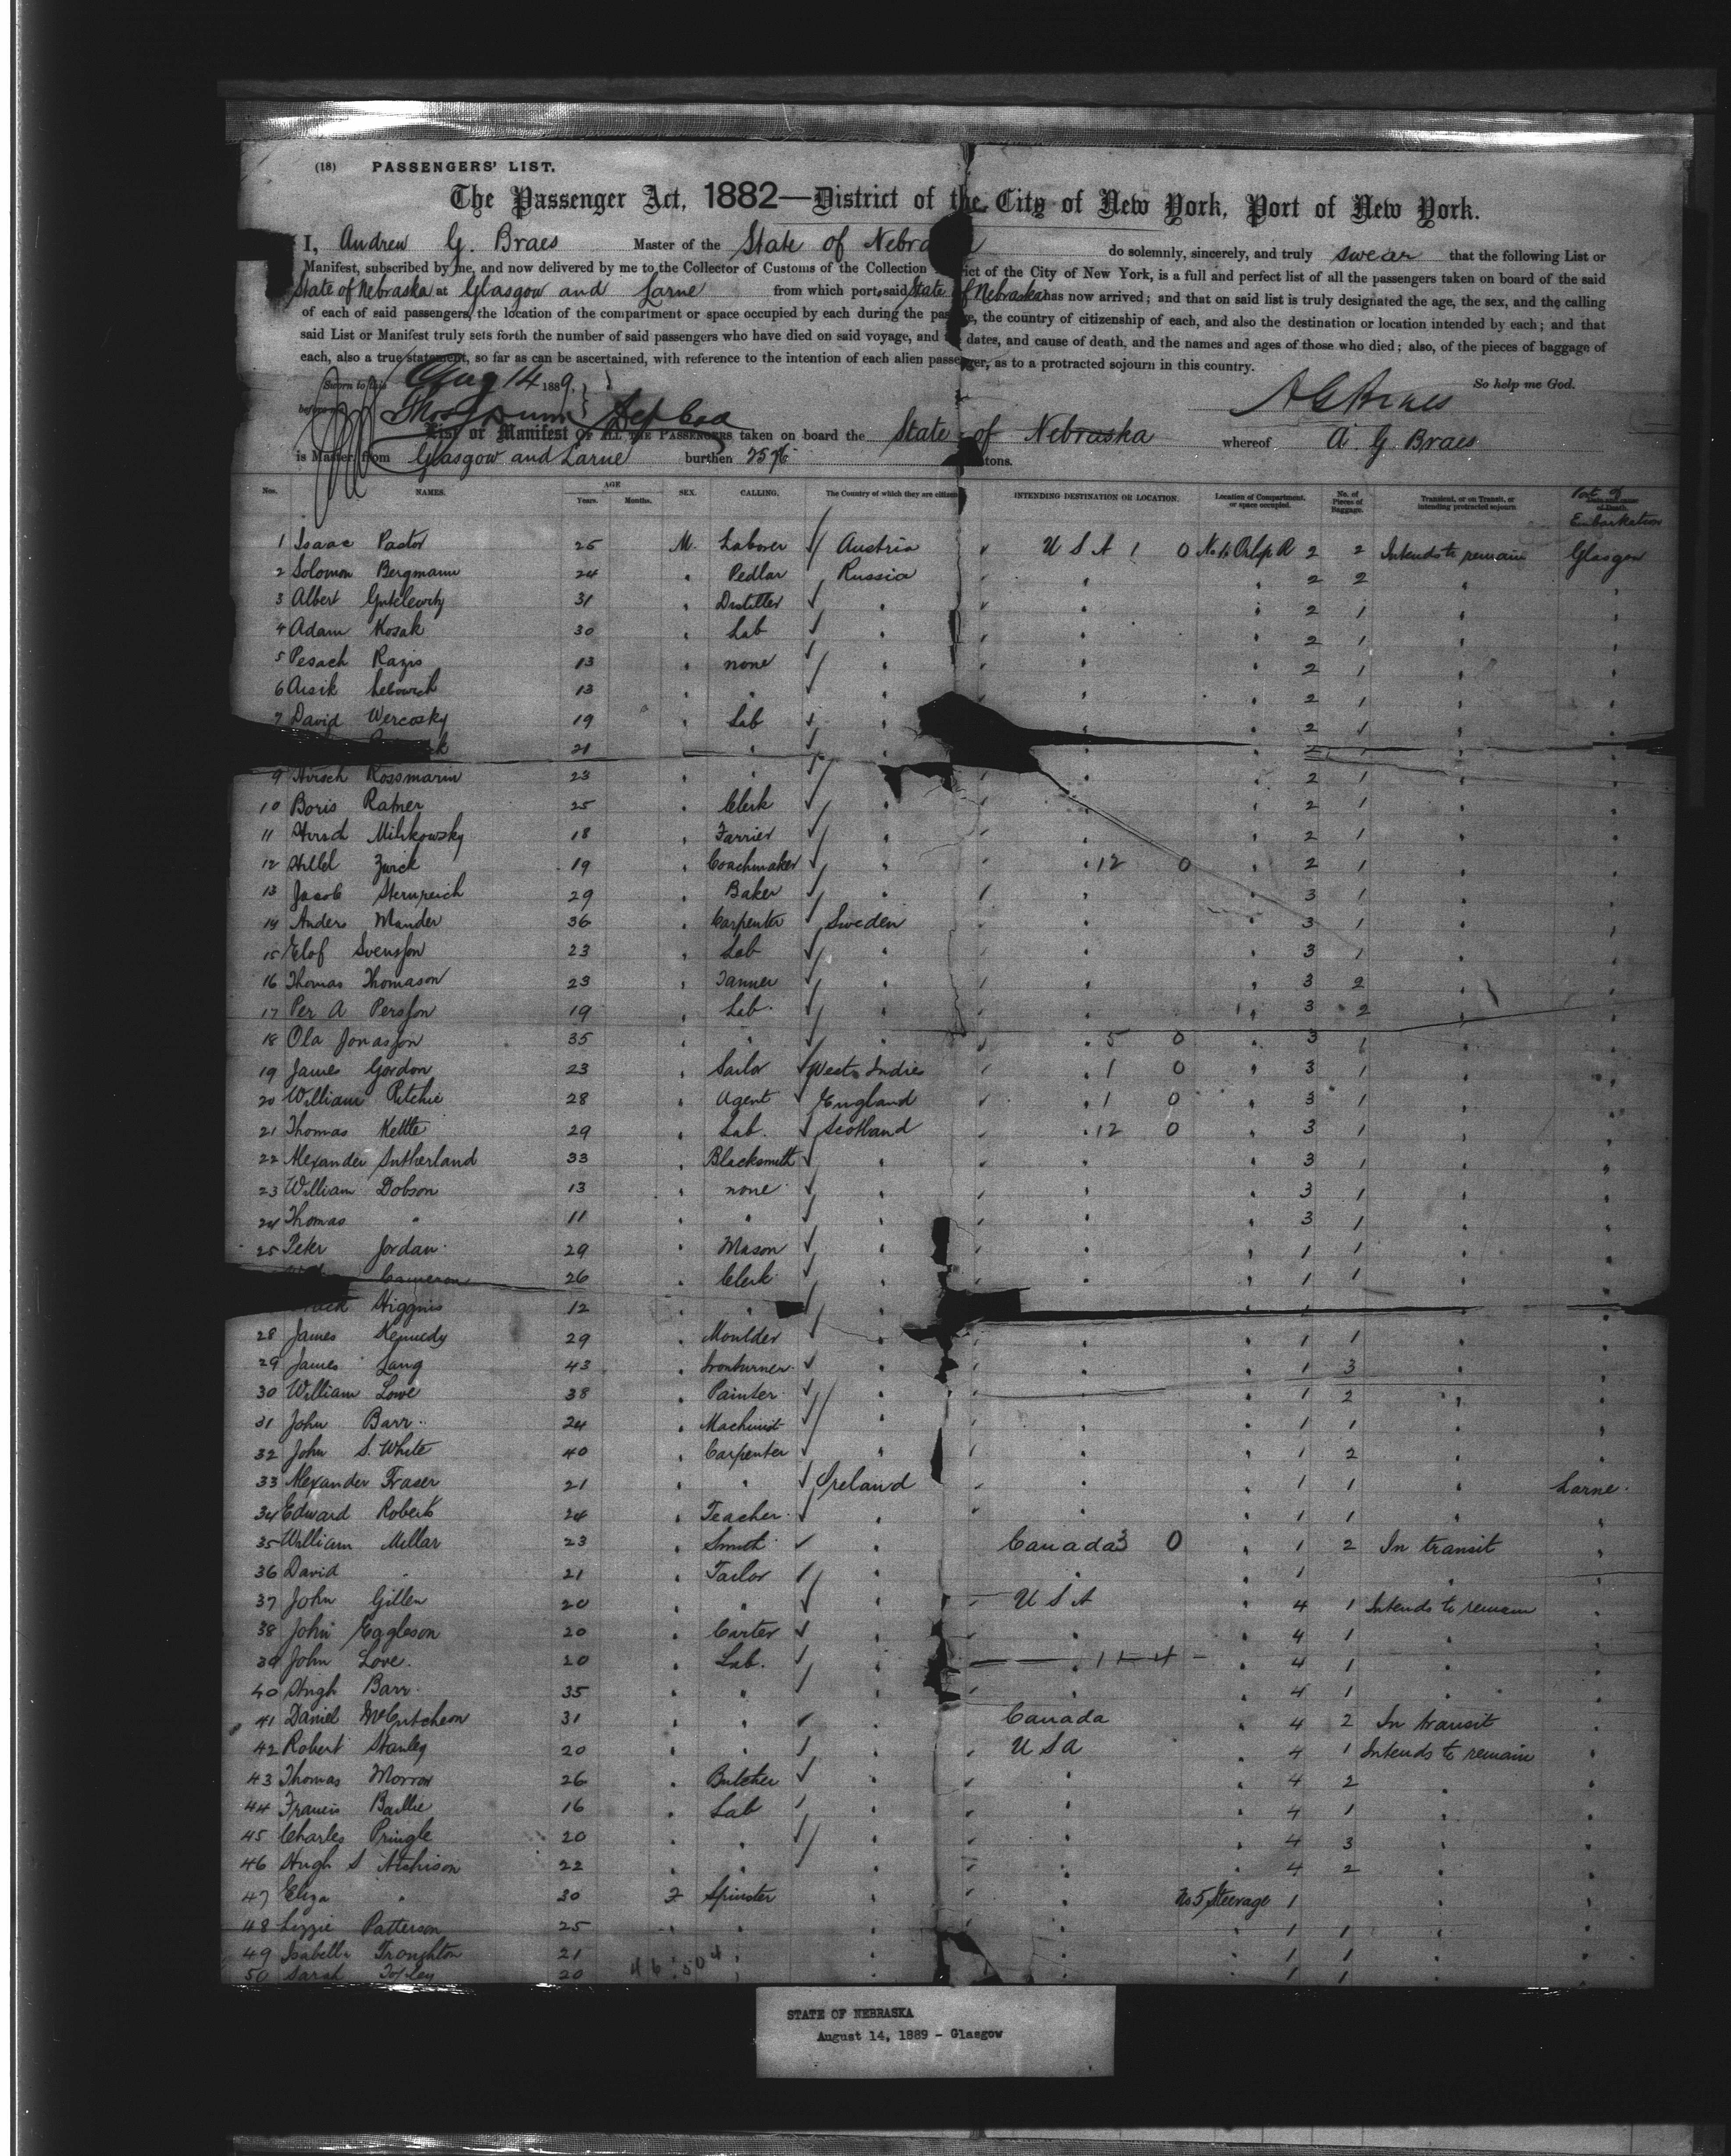 (18) PASSENGERS' LIST.
The Passenger Act, 1882—District of the City of New York, Port of New York.
I, Andrew G. Braes Master of the State of Nebra do solemnly, sincerely, and truly swear that the following List or
Manifest, subscribed by me, and now delivered by me to the Collector of Customs of the Collection District of the City of New York, is a full and perfect list of all the passengers taken on board of the said
State of Nebraska at Glasgow and Larne from which port, said State of Nebraska has now arrived; and that on said list is truly designated the age, the sex, and the calling
of each of said passengers, the location of the compartment or space occupied by each during the passage, the country of citizenship of each, and also the destination or location intended by each; and that
said List or Manifest truly sets forth the number of said passengers who have died on said voyage, and the dates, and cause of death, and the names and ages of those who died; also, of the pieces of baggage of
each, also a true statement, so far as can be ascertained, with reference to the intention of each alien passenger, as to a protracted sojourn in this country.
Sworn to this Aug 14 1889 So help me God.
before A G Braes
List or Manifest OF ALL THE PASSENGERS taken on board the State of Nebraska whereof A. G. Braes
is Master, from Glasgow and Larne burthen 2576 tons.
Nos. NAMES. AGE Years. Months. SEX. CALLING. The Country of which they are citizens INTENDING DESTINATION OR LOCATION. Location of Compartment, or space occupied. No. of Pieces of Baggage. Transient, or on Transit, or intending protracted sojourn Port of Embarkation
1 Isaac Pastor 25 M. Laborer Austria U S A 1 0 2 2 Intends to remain Glasgow
2 Solomon Bergmann 24 " Pedlar Russia " " 2 2 " "
3 Albert 31 " Distiller " " " 2 1 " "
4 Adam Kosak 30 " Lab " " " 2 1 " "
5 Pesach Razis 13 " none " " " 2 1 " "
6 Aisik 13 " " " " " 2 1 " "
7 David Wercosky 19 " Lab " " " 2 1 " "
k 21 " " "
9 Hirsch Rossmarin 23 " " " " 2 1 " "
10 Boris Ratner 25 " Clerk " " " 2 1 " "
11 Hirsch Milikowsky 18 " Farrier " " " 2 1 " "
12 Hillel Zwick 19 " Coachmaker " " 12 0 " 2 1 " "
13 Jacob Sternreich 29 " Baker " " " 3 1 " "
14 Anders Mander 36 " Carpenter Sweden " " 3 1 " "
15 Elof Svensson 23 " Lab " " " 3 1 " "
16 Thomas Thomason 23 " Tanner " " " 3 2 " "
17 Per A Persson 19 " Lab. " " " 3 2 " "
18 Ola Jonasson 35 " " " " 5 0 " 3 1 " "
19 James Gordon 23 " Sailor West Indies " 1 0 " 3 1 " "
20 William Ritchie 28 " Agent England " 1 0 " 3 1 " "
21 Thomas Kettle 29 " Lab. Scotland " 12 0 " 3 1 " "
22 Alexander Sutherland 33 " Blacksmith " " " 3 1 " "
23 William Dobson 13 " none " " " 3 1 " "
24 Thomas " 11 " " " " " 3 1 " "
25 Peter Jordan 29 " Mason " " " 1 1 " "
Cameron 26 " Clerk " " " 1 1 " "
Higgins 12 " " " " "
28 James Kennedy 29 " Moulder " " " 1 1 " "
29 James Lang 43 " Ironturner " " " 1 3 " "
30 William Lowe 38 " Painter " " " 1 2 " "
31 John Barr 24 " Machinist " " " 1 1 " "
32 John S. White 40 " Carpenter " " " 1 2 " "
33 Alexander Fraser 21 " " Ireland " " 1 1 " Larne
34 Edward Roberts 24 " Teacher " " " 1 1 " "
35 William Millar 23 " Smith " Canada 3 0 " 1 2 In transit "
36 David " 21 " Tailor " " " 1 " "
37 John Gillen 20 " " " U S A " 4 1 Intends to remain "
38 John Eggleson 20 " Carter " " " 4 1 " "
39 John Love 20 " Lab. " " " 4 1 " "
40 Hugh Barr 35 " " " " " 4 1 " "
41 Daniel McCutcheon 31 " " " Canada " 4 2 In transit "
42 Robert Stanley 20 " " " U S A " 4 1 Intends to remain "
43 Thomas Morrow 26 " Butcher " " " 4 2 " "
44 Francis Baillie 16 " Lab " " " 4 1 " "
45 Charles Pringle 20 " " " " " 4 3 " "
46 Hugh S Atchison 22 " " " " " 4 2 " "
47 Eliza " 30 F Spinster " " No 5 Steerage 1 " "
48 Lizzie Patterson 25 " " " " " 1 1 " "
49 Isabella Troughton 21 " " " " 1 1 " "
50 Sarah 20 " " " " 1 1 " "
STATE OF NEBRASKA
August 14, 1889 - Glasgow